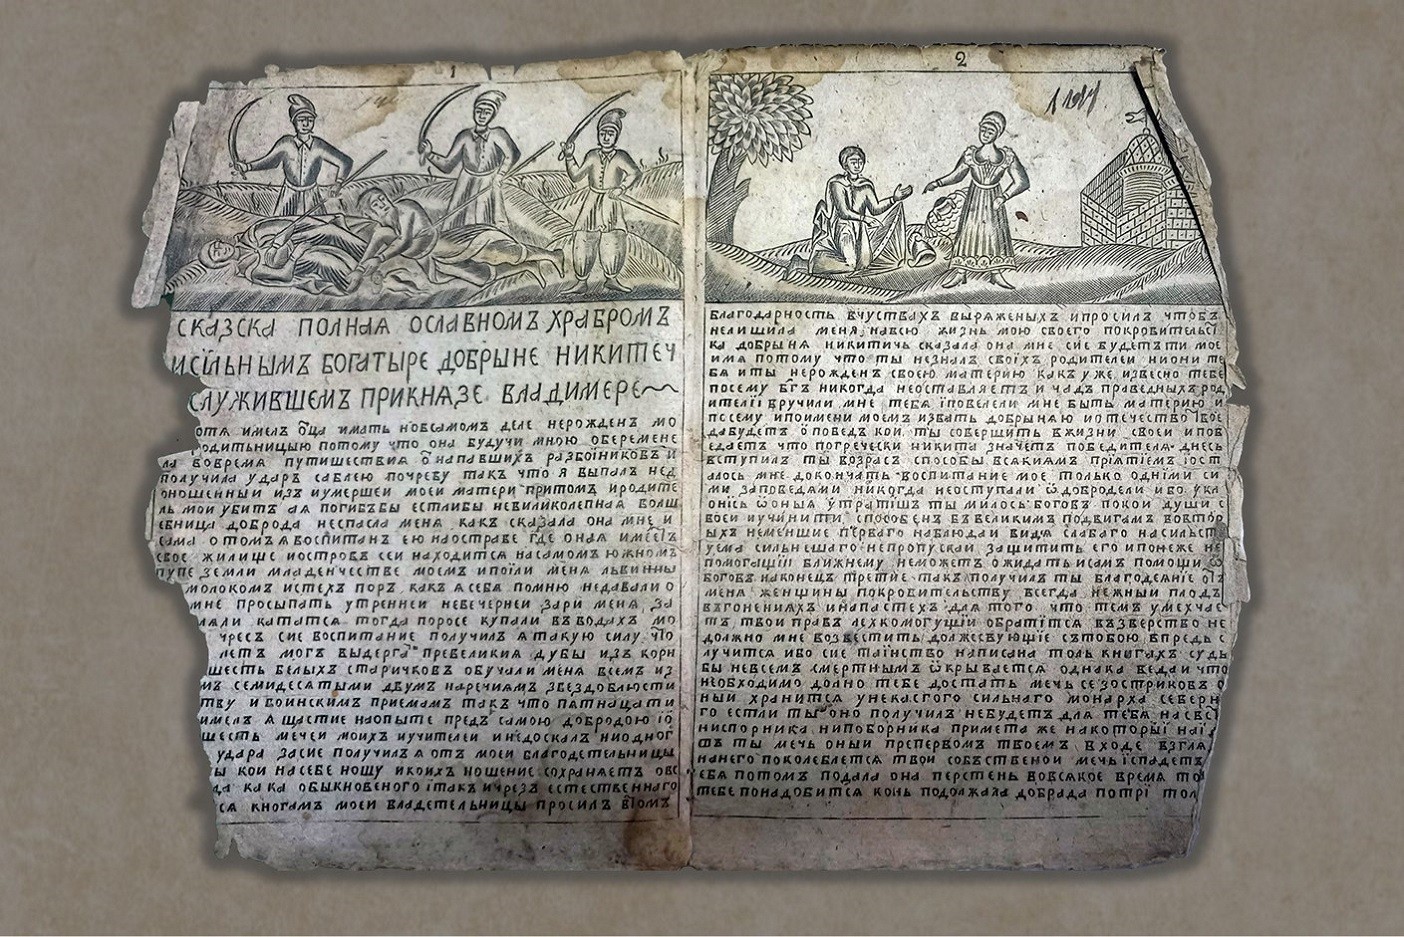 1
СКАЗСКА ПОЛНАЯ ОСЛАВНОМЪ ХРАБРОМЪ
ИСЇЛЬНЫМЪ БОГАТЫРЕ ДОБРЫНЕ НИКИТЕЧ
СЛУЖИВШЕМЪ ПРИКНЯЗЕ ВЛАДИМЕРЕ
отя имелъ оца имать новсамомъ деле нерожденъ мо
родитьницыю потому что она будучи мною оберемене
ла вовремя путишествия напавшихъ разбоиниковъ и
получила ударъ саблею почребу такъ что я выпалъ нед
оношенныи изъ иумершеи моеи матери притомъ иродите
ль мои убитъ ая погибъбы естлибы невиликолепная волш
ебница доброда неспасла меня какъ сказала она мне и
сама отомъ явоспитанъ ею наострове где оная имеетъ
свое жилище иостровъ сеи находится насамомъ южномъ
пупе земли младенчестве моемъ ипоїли меня львинны
молокомъ истехъ поръ какъ ясебя помню недавали о
мне просыпать утреннеи невечернеи зари меня за
ляли кататся тогда поросе купали въводахъ мо
чресъ сие воспитание получилъ ятакую силу что
летъ могъ выдергать превеликия дубы изъ корн
шесть белыхъ старичковъ обучали меня всемъ из
мъ семидесятыми двумъ наречиямъ звездоблюсти
тву ивоинскимъ приемамъ такъ что пятнацати
имелъ я щастие наопыте предъ самою добродою
шесть мечеи моихъ иучителеи инедоскалъ ниодног
удара засие получилъ яотъ моеи благодетельницы
ы кои насебе ношу икоихъ ношение сохраняетъ ово
да кака обыкновеного їтакъ ичрезъ естественнаго
ся кногамъ моеи владетельницы просилъ втомъ
2
благодарность вчуствахъ выряженыхъ ипросилъ чтобъ
нелишила меня навсю жизнь мою своего покровительсї
ка добрыня никитичь сказала она мне сие будетъти мое
имя потому что ты незналъ своїхъ родителеи ниони те
бя иты нерожденъ своею материю какъ уже извесно тебе
посему бгъ никогда неоставляетъ и чадъ праведныхъ род
ителїї вручили мне тебя їповелели мне быть материю и
посему ипоимени моемъ извать добрыняю иотечество твое
дабудетъ ѿ победъ кои ты совершитъ вжизни своеи ипов
едаетъ что погречески никита значетъ победителя днесь
вступилъ ты возрасъ способы всякиямъ прїятїемъ їост
алось мне докончать воспитание мое только однїми си
ми заповедями никогда неоступали ѿ добродели ибо укл
онїсь ѿ оныя утратишъ ты милось боговъ покои души с
воеи иучинити способенъ въвеликимъ подвигамъ вовтор
ыхъ неменшие перваго наблюдаи видя слабаго насильст
уема сильнешаго непропускаи защитить его ипонеже не
помогащїї ближнему неможетъ ожидать исамъ помощи ѿ
боговъ наконецъ третие такъ получилъ ты благодеяние отъ
меня женщины покровительству всегда нежный плодъ
възгонениахъ инапастехъ для того что темъ умехчае
тъ твои правъ лехкомогущїї обратїтся възверство не
должно мне возвестить должесвующїе сътобою впредь с
лучится ибо сие таїнство написана толь книгахъ судь
бы невсемъ смертнымъ ѿкрывается однака ведаи что
необходимо долно тебе достать мечь сезостриковъ о
ныи хранится унекасгого сильнаго монарха северн
го естли ты оно получилъ небудетъ для тебя насвє
ниспорника нипоборника примета же накоторыї наї
тъ ты мечь оныи препервомъ твоемъ входе взгля
нанего поколеблется твои собственои мечь їспадетъ
ебя потомъ подала она перстень вовсякое время то
тебе понадобится конь подолжала добрада потрї тол